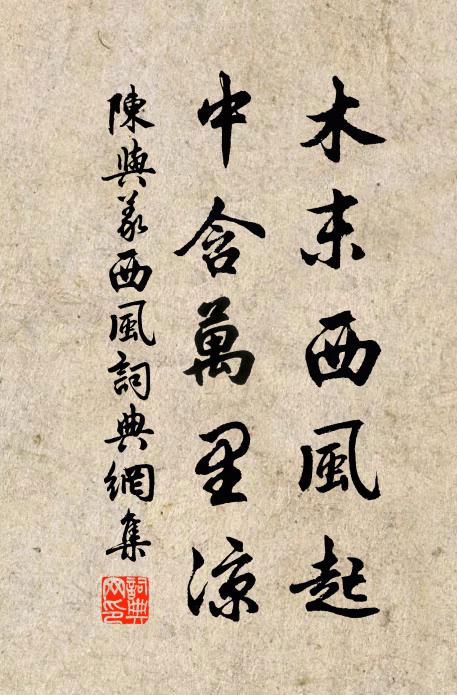 木末西風起
中含萬里涼
陳與義西風詞典網集
詞典
文印